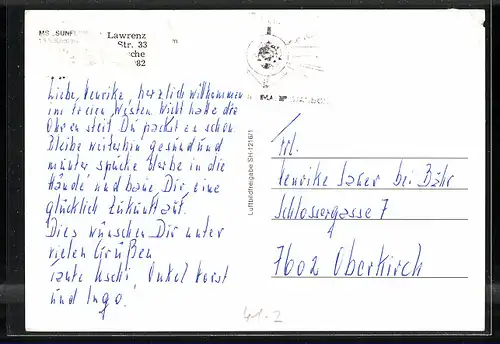 MS „SUNFL
Lawrenz
Str. 33
che
982
Liebe Henrike, herzlich willkommen
im freien Westen. Nicht halte die
Ohren steif. Du packst es schon.
Bleibe weiterhin gesund und
munter spucke derbe in die
Hände und baue Dir eine
glücklich Zukunft auf.
Dies wünschen Dir unter
vielen Grüßen
Tante Uschi, Onkel Horst
und Ingo.
Luftbildfreigabe SH-1216/1
Frl.
Henrike Saker bei Bähr
Schlossergasse 7
7602 Oberkirch
41.2